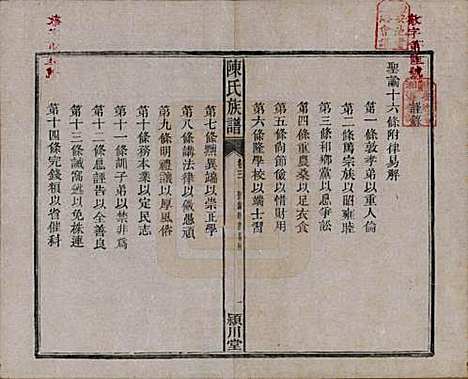 聖諭十六條附律易解
第一條敦孝弟以重人倫
第二條篤宗族以昭雍睦
第三條和鄉黨以息爭訟
第四條重農桑以足衣食
第五條尚節儉以惜財用
第六條隆學校以端士習
陳氏族譜
卷三
一
潁川堂
第七條黜異端以崇正學
第八條講法律以儆愚頑
第九條明禮讓以厚風俗
第十條務本業以定民志
第十一條訓子弟以禁非為
第十二條息誣告以全善良
第十三條誡窩逃以免株連
第十四條完錢糧以省催科